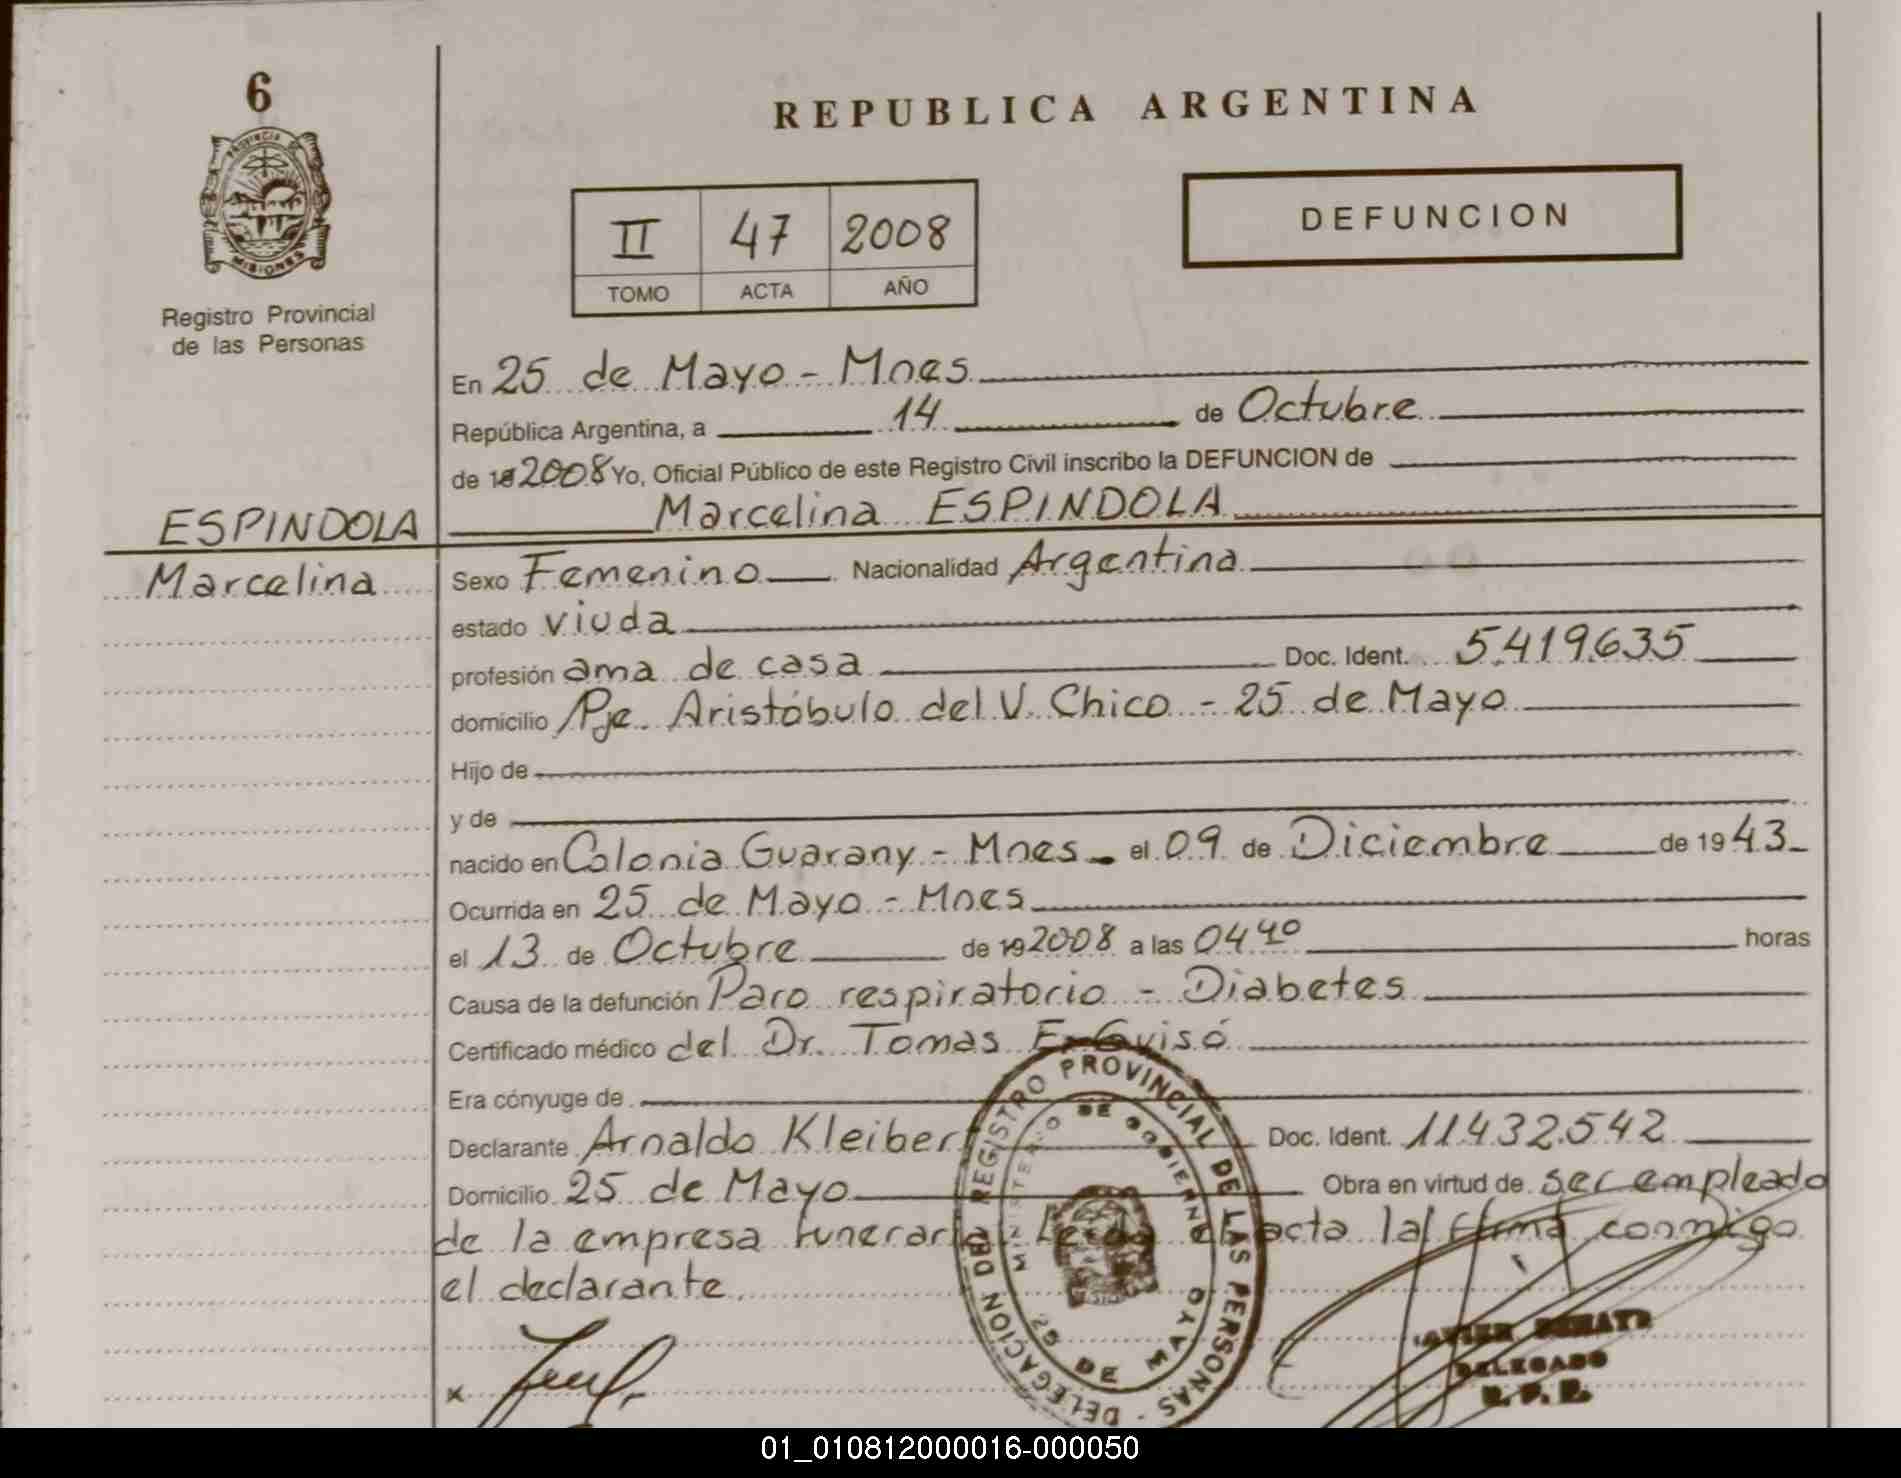 6
PROVINCIA DE
MISIONES
Registro Provincial
de las Personas
REPUBLICA ARGENTINA
II 47 2008
TOMO ACTA AÑO
DEFUNCION
En 25 de Mayo - Mnes
República Argentina, a 14 de Octubre
de 19 2008 Yo, Oficial Público de este Registro Civil inscribo la DEFUNCION de
Marcelina ESPINDOLA
ESPINDOLA
Marcelina
Sexo Femenino Nacionalidad Argentina
estado viuda
profesión ama de casa Doc. Ident. 5.419.635
domicilio Pje. Aristóbulo del V. Chico - 25 de Mayo
Hijo de
y de
nacido en Colonia Guarany - Mnes el 09 de Diciembre de 1943
Ocurrida en 25 de Mayo - Mnes
el 13 de Octubre de 19 2008 a las 04 40 horas
Causa de la defunción Paro respiratorio - Diabetes
Certificado médico del Dr. Tomas E. Gvisó
Era cónyuge de
Declarante Arnaldo Kleibert Doc. Ident. 11.432.542
Domicilio 25 de Mayo Obra en virtud de ser empleado
de la empresa funeraria. Leída el acta la firma conmigo
el declarante.
x
DELEGACION DEL REGISTRO PROVINCIAL DE LAS PERSONAS
MINISTERIO DE GOBIERNO
25 DE MAYO
DELEGADO
R. P. P.
01_010812000016-000050